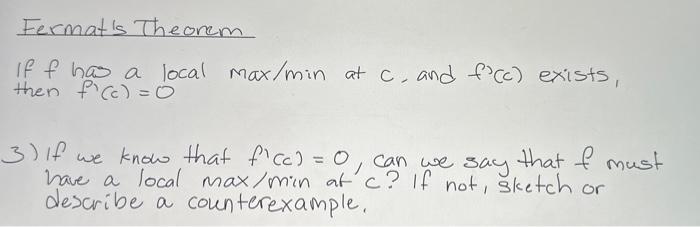 Fermat's Theorem
If f has a local max/min at c, and f'(c) exists,
then f'(c) = 0
3) If we know that f'(c) = 0, can we say that f must
have a local max/min at c? If not, sketch or
describe a counterexample.